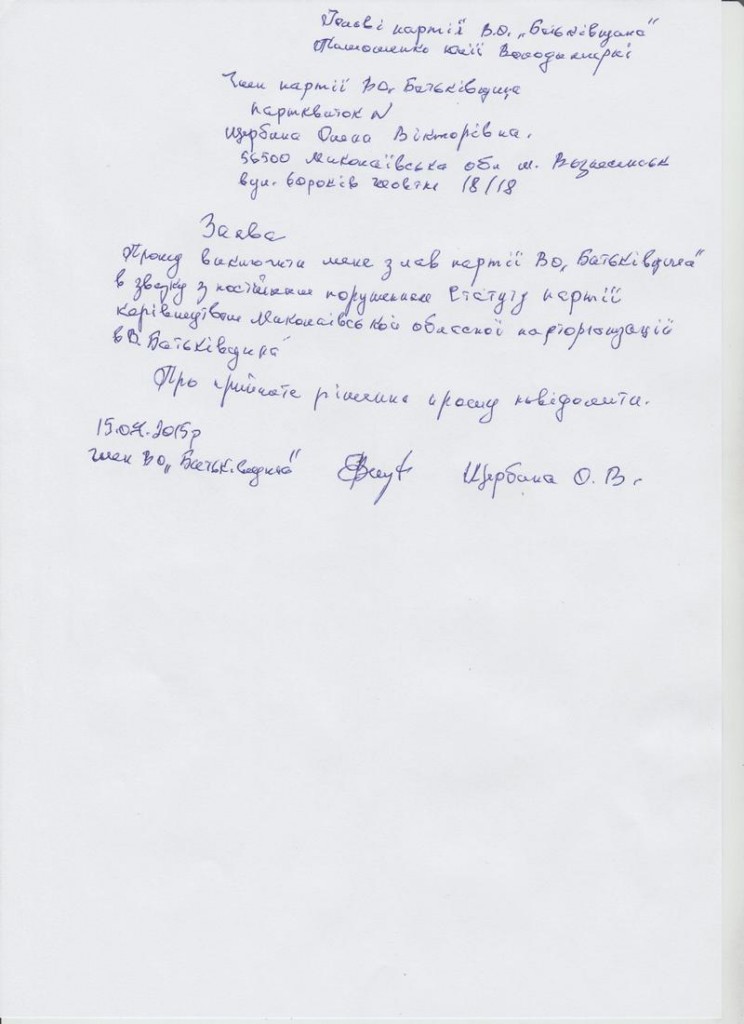 Голові партії В.О. „Батьківщина"
Тимошенко Юлії Володимирівні
Член партії ВО„ Батьківщина
партквиток №
Щербина Олена Вікторівна.
56500 Миколаївська обл м. Вознесенськ
вул. 60років жовтня 18/18
Заява
Прошу виключити мене з лав партії ВО„ Батьківщина"
в звязку з постійним порушенням Статуту партії
керівництвом Миколаївської обласної парторганізації
вВ. Батьківщина"
Про прийняте рішення прошу повідомити.
15.07.2015р
член ВО„ Батьківщина" Щербина О. В.